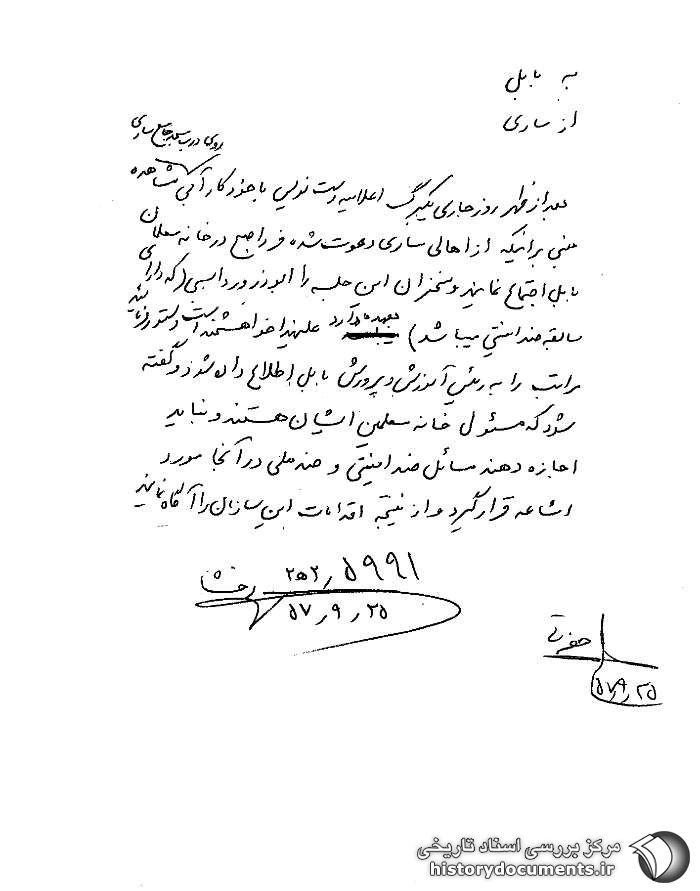 به بابل
از ساری
روی درب مسجد جامع ساری
بعد از ظهر روز جاری یکبرگ اعلامیه دست نویس با خودکار آبی مشاهده
مبنی بر اینکه از اهالی ساری دعوت شده فردا صبح در خانه معلمان
بابل اجتماع نمایند و سخنران این جلسه را ابوذر ورداسبی (که دارای
سابقه ضد امنیتی میباشد) بعهده دارد علیهذا خواهشمند است دستور فرمائید
مراتب را به رئیس آموزش و پرورش بابل اطلاع داده شود و گفته
شود که مسئول خانه معلمین ایشان هستند و نباید
اجازه دهند مسائل ضد امنیتی و ضد ملی در آنجا مورد
اشاعه قرار گیرد و از نتیجه اقدامات این سازمان را آگاه نمایند
۵۹۹۱ / ۲ه۲
۵۷٫۹٫۲۵
۵۷٫۹٫۲۵
مرکز بررسی اسناد تاریخی
historydocuments.ir